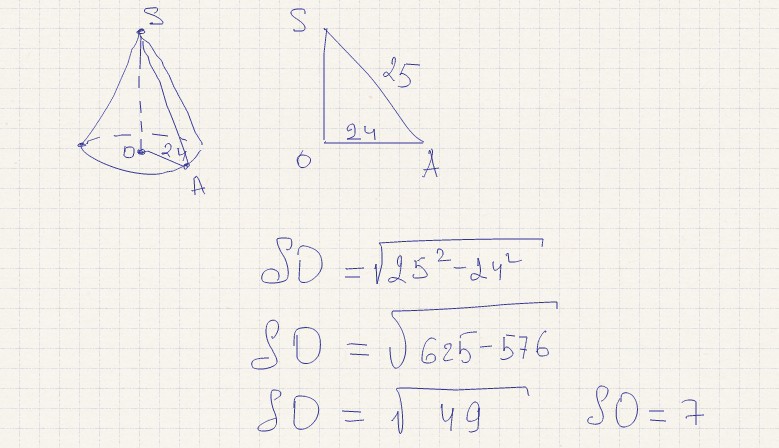 S
O 24
A
S
25
24
O A
SO = √25² - 24²
SO = √625 - 576
SO = √49 SO = 7